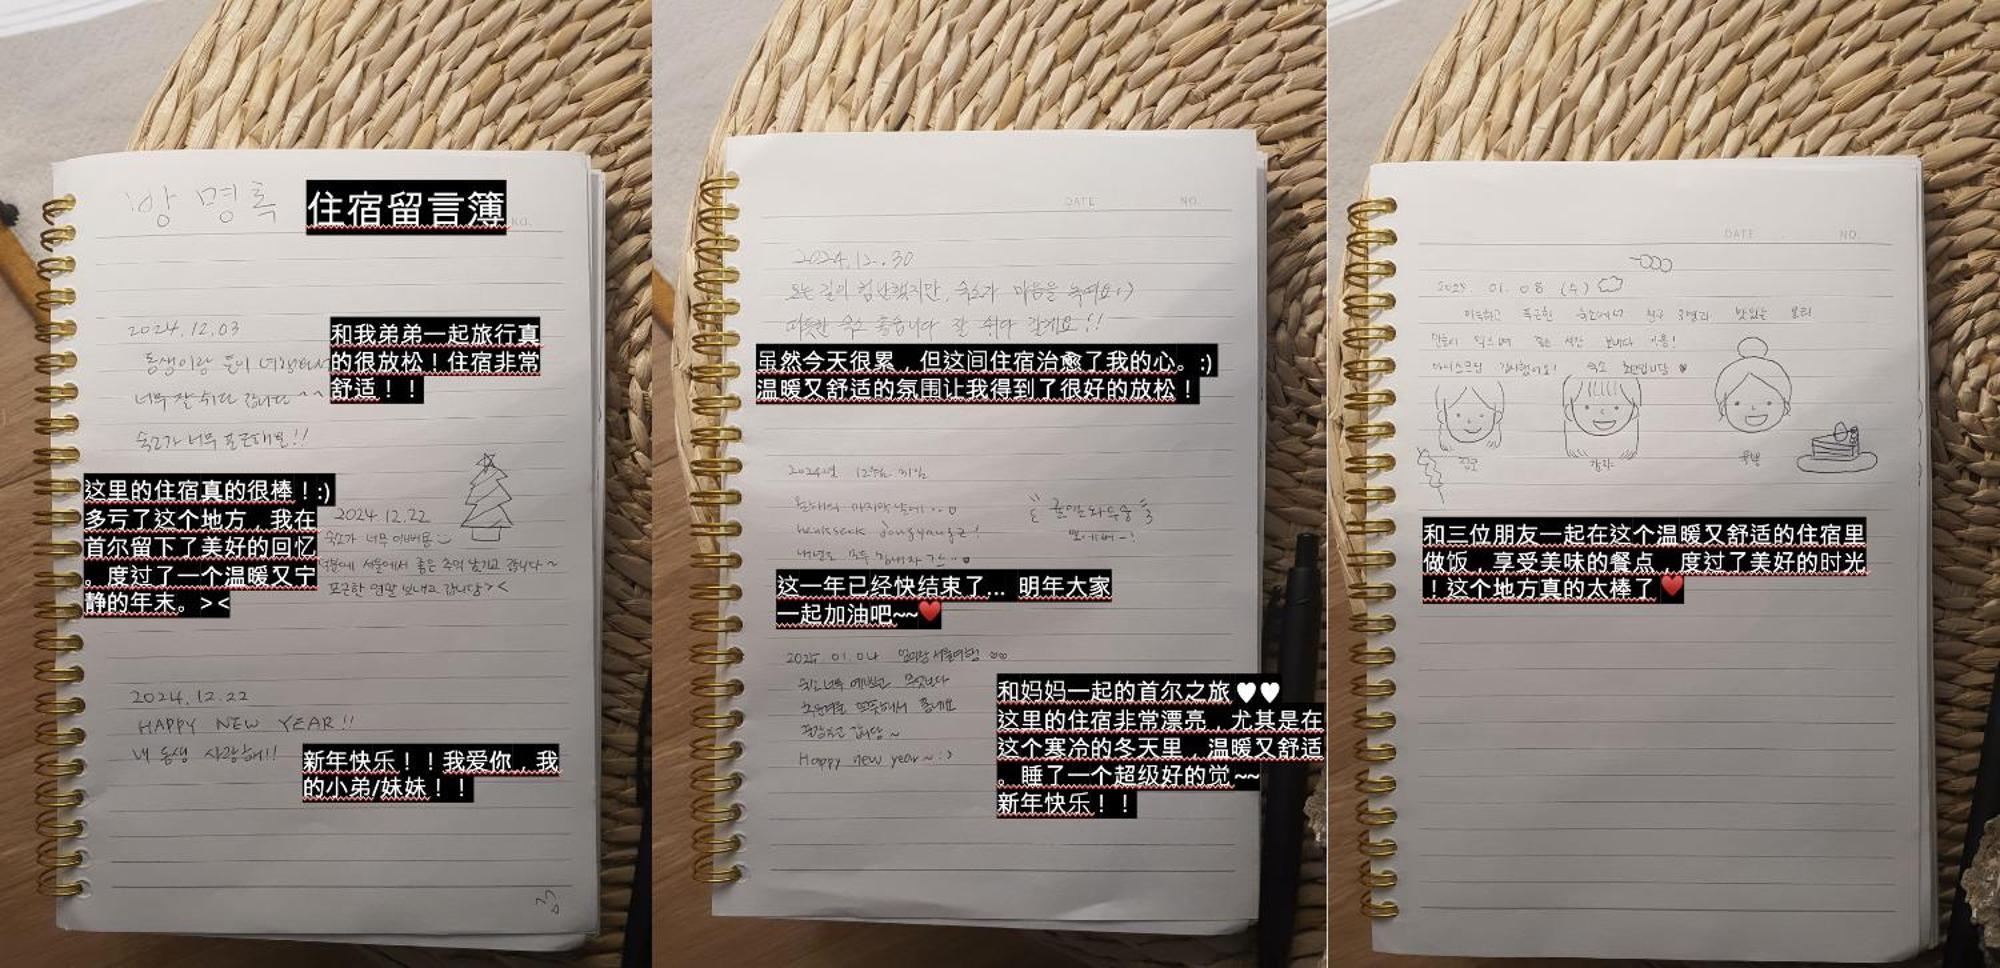 방명록
住宿留言簿
NO.
2024.12.03
동생이랑 둘이 여행와서
너무 잘 쉬다 갑니다~~
숙소가 너무 포근해요!!
和我弟弟一起旅行真
的很放松！住宿非常
舒适！！
2024.12.22
숙소가 너무 이뻐용
덕분에 서울에서 좋은 추억 남기고 갑니다~
포근한 연말 보내고 갑니다><
这里的住宿真的很棒！:)
多亏了这个地方，我在
首尔留下了美好的回忆
。度过了一个温暖又宁
静的年末。><
2024.12.22
HAPPY NEW YEAR!!
내 동생 사랑해!!
新年快乐！！我爱你，我
的小弟/妹妹！！
DATE NO.
2024.12.30
오는 길이 험난했지만, 숙소가 마음을 녹여요:)
따뜻한 숙소 좋습니다 잘 쉬다 갈게요!!
虽然今天很累，但这间住宿治愈了我的心。:)
温暖又舒适的氛围让我得到了很好的放松！
2024년 12월 31일
마지막 날에
这一年已经快结束了... 明年大家
一起加油吧~~❤️
2025 01.04 엄마랑 서울여행!
숙소 너무 예쁘고
따뜻해서 좋네요
갑니당~
Happy new year~:)
和妈妈一起的首尔之旅♥♥
这里的住宿非常漂亮，尤其是在
这个寒冷的冬天里，温暖又舒适
。睡了一个超级好的觉~~
新年快乐！！
DATE NO.
2025. 01. 08 (수)
포근한 숙소에서 친구 3명과 맛있는 요리
좋은 시간 보내다 가용!
감사했어요! 숙소 최고입니당♥
和三位朋友一起在这个温暖又舒适的住宿里
做饭，享受美味的餐点，度过了美好的时光
！这个地方真的太棒了❤️